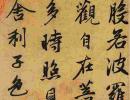 般若波羅
觀自在菩
多時照見
舍利子色